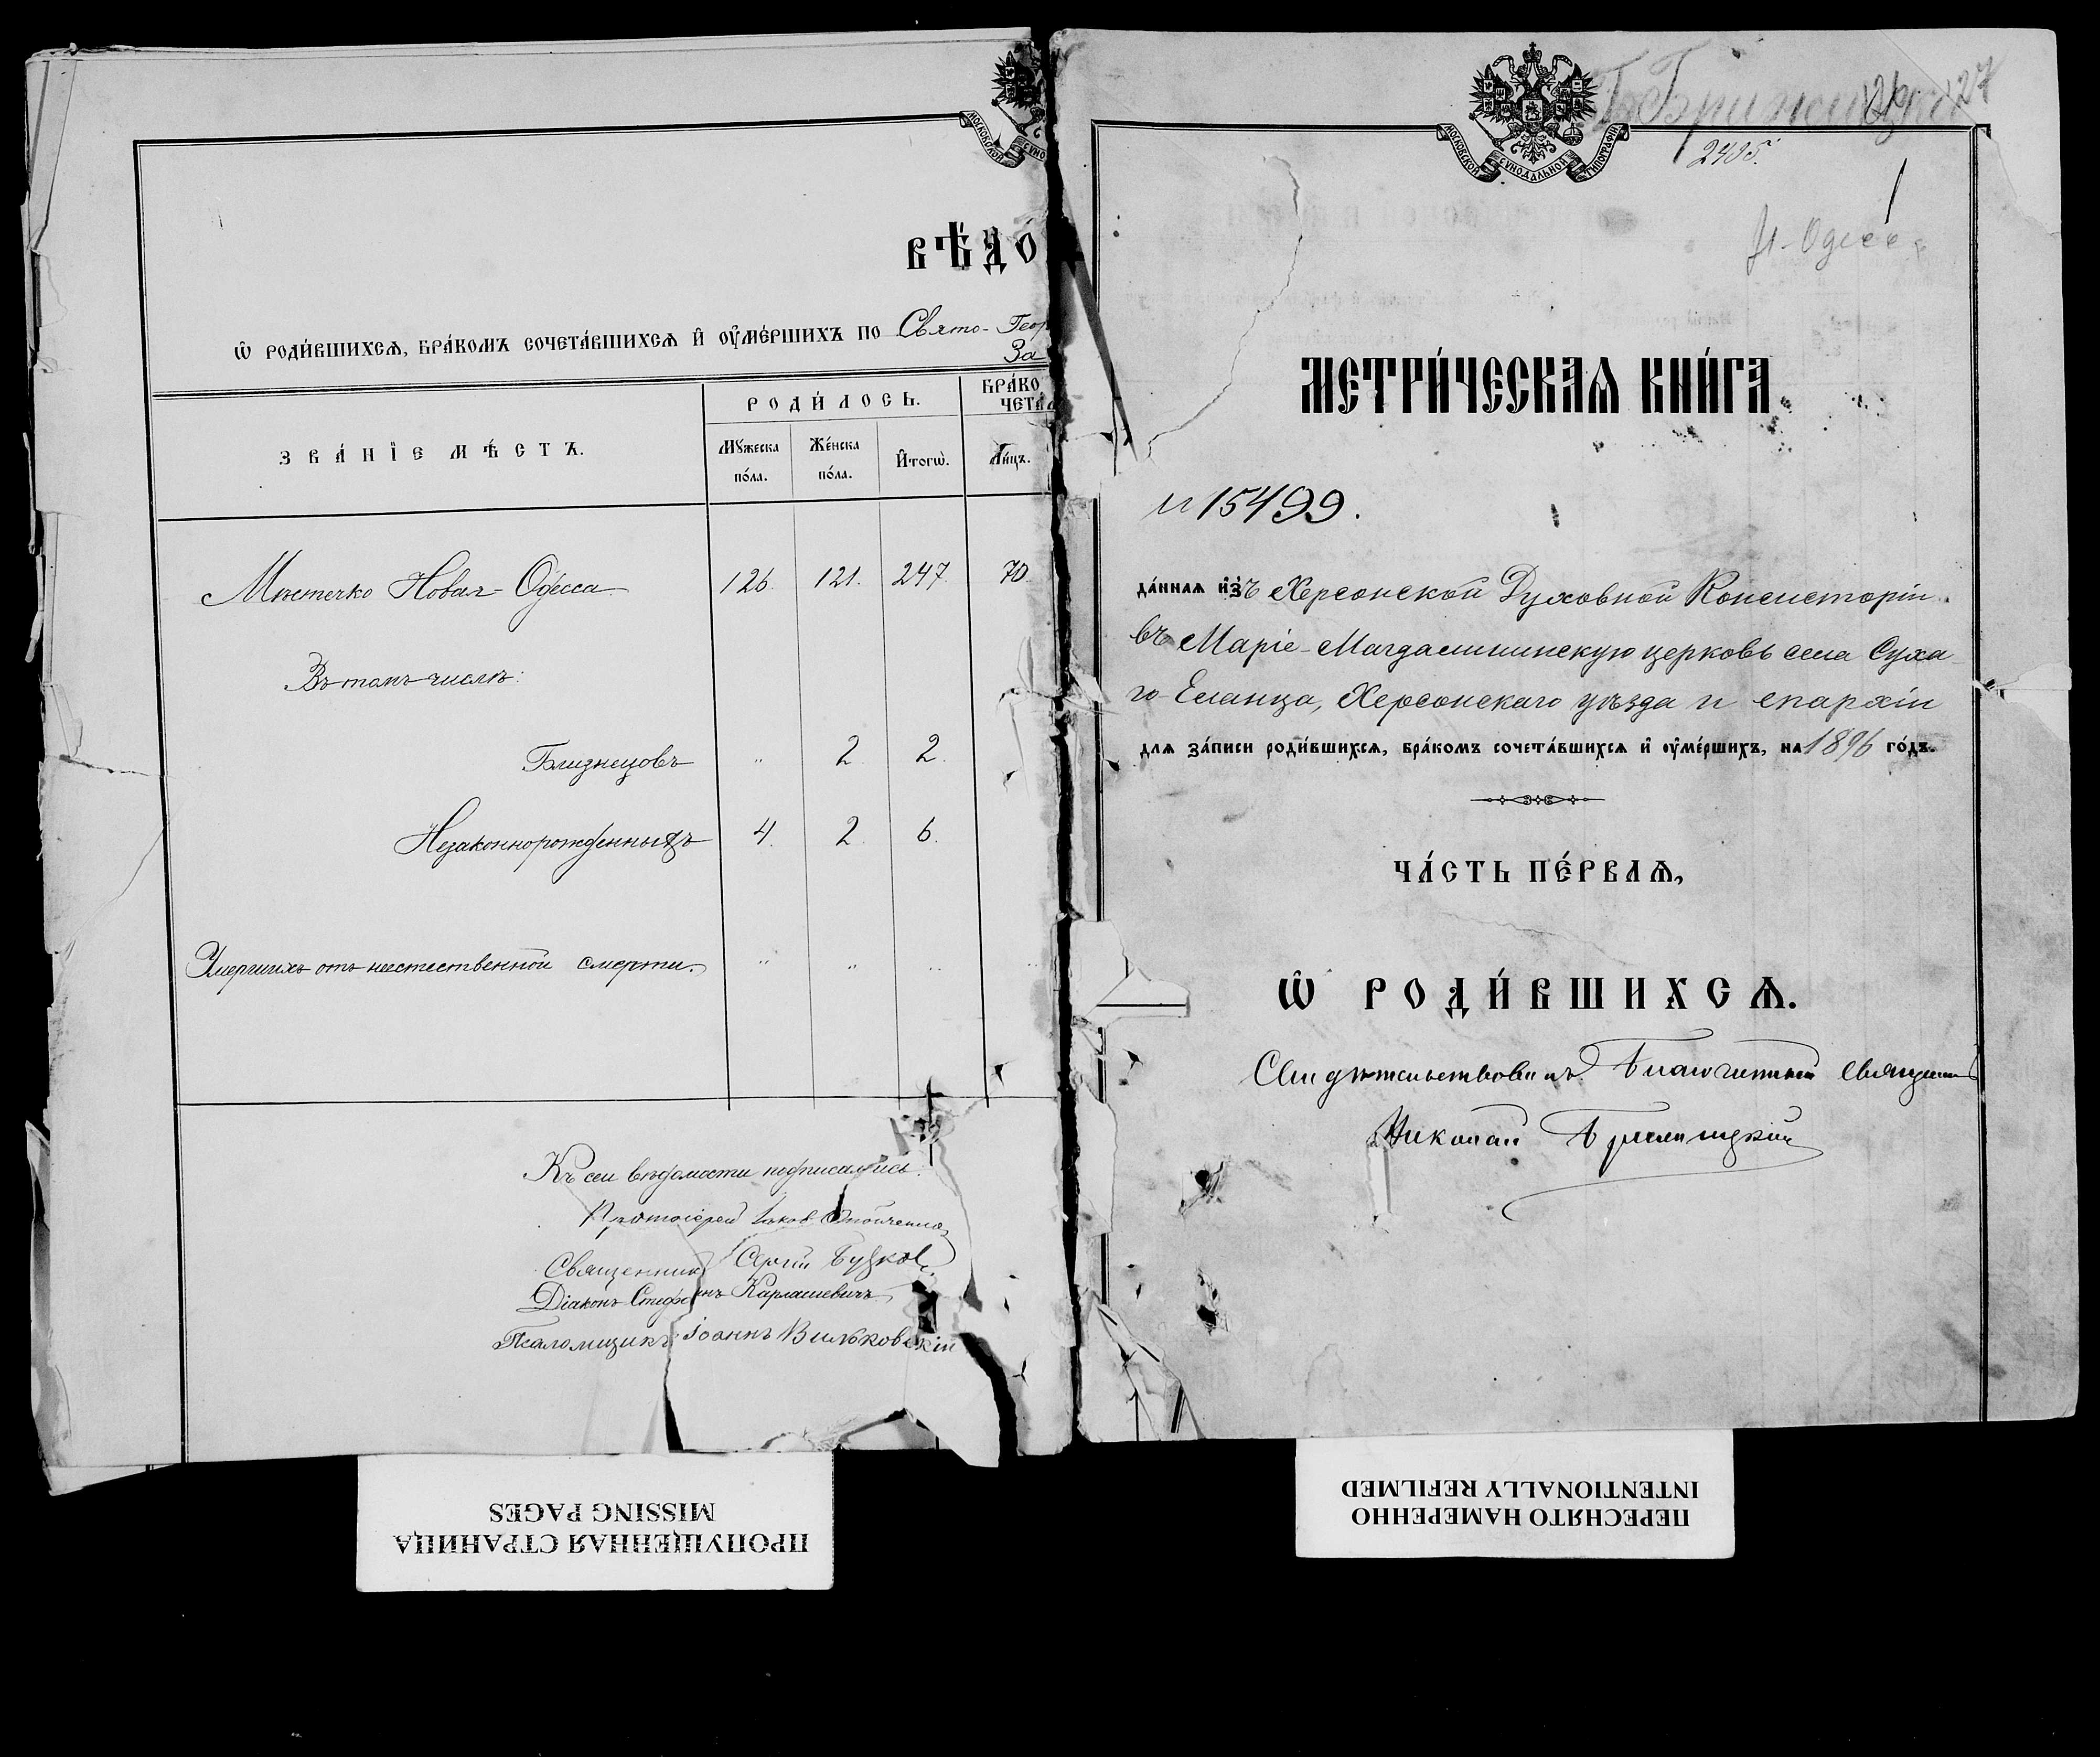 МОСКОВСКОЙ СѴНО
ВѢДО
Ѡ РОДИ́ВШИХСѦ, БРА́КОМЪ СОЧЕТА́ВШИХСѦ И҆ ОУ҆МЕ́РШИХЪ ПО Свято-Геор
За
ЗВА́НЇЕ МѢ́СТЪ.
РОДИ́ЛОСЬ.
БРА́КО
ЧЕТА́
Мꙋ́жеска по́ла.
Же́нска по́ла.
И҆того̀.
Ли́цъ.
Мѣстечко Новая-Одесса 126. 121. 247. 70.
Въ томъ числѣ:
Близнецовъ " 2 2.
Незаконнорожденныхъ 4. 2. 6.
Умершихъ отъ неестественной смерти. " " "
Къ сей вѣдомости подписались:
Протоіерей Іаковъ
Священникъ Сергій Буzков
Діаконъ Стефанъ Карпасевичъ
Псаломщикъ Іоаннъ Вильковскій
ПРОПУЩЕННАЯ СТРАНИЦА
MISSING PAGES
МОСКОВСКОЙ СѴНОДАЛЬНОЙ ТИПОГРАФІИ
127
2485.
1
Н-Одесса
МЕТРИ́ЧЕСКАѦ КНИ́ГА
№ 15499.
да́нная и҆зъ Херсонской Духовной Консисторіи
въ Маріе-Магдалининскую церковь села Суха
го Еланца, Херсонскаго уѣзда и епархіи
для за́писи роди́вшихся, бра́комъ сочета́вшихся и҆ оу҆ме́ршихъ, на 1896 го́дъ.
ЧА́СТЬ ПЕ́РВАѦ,
Ѡ РОДИ́ВШИХСѦ.
Свидѣтельствовалъ Благочинный Священникъ
Николай Бриницкій
ПЕРЕСНЯТО НАМЕРЕННО
INTENTIONALLY REFILMED